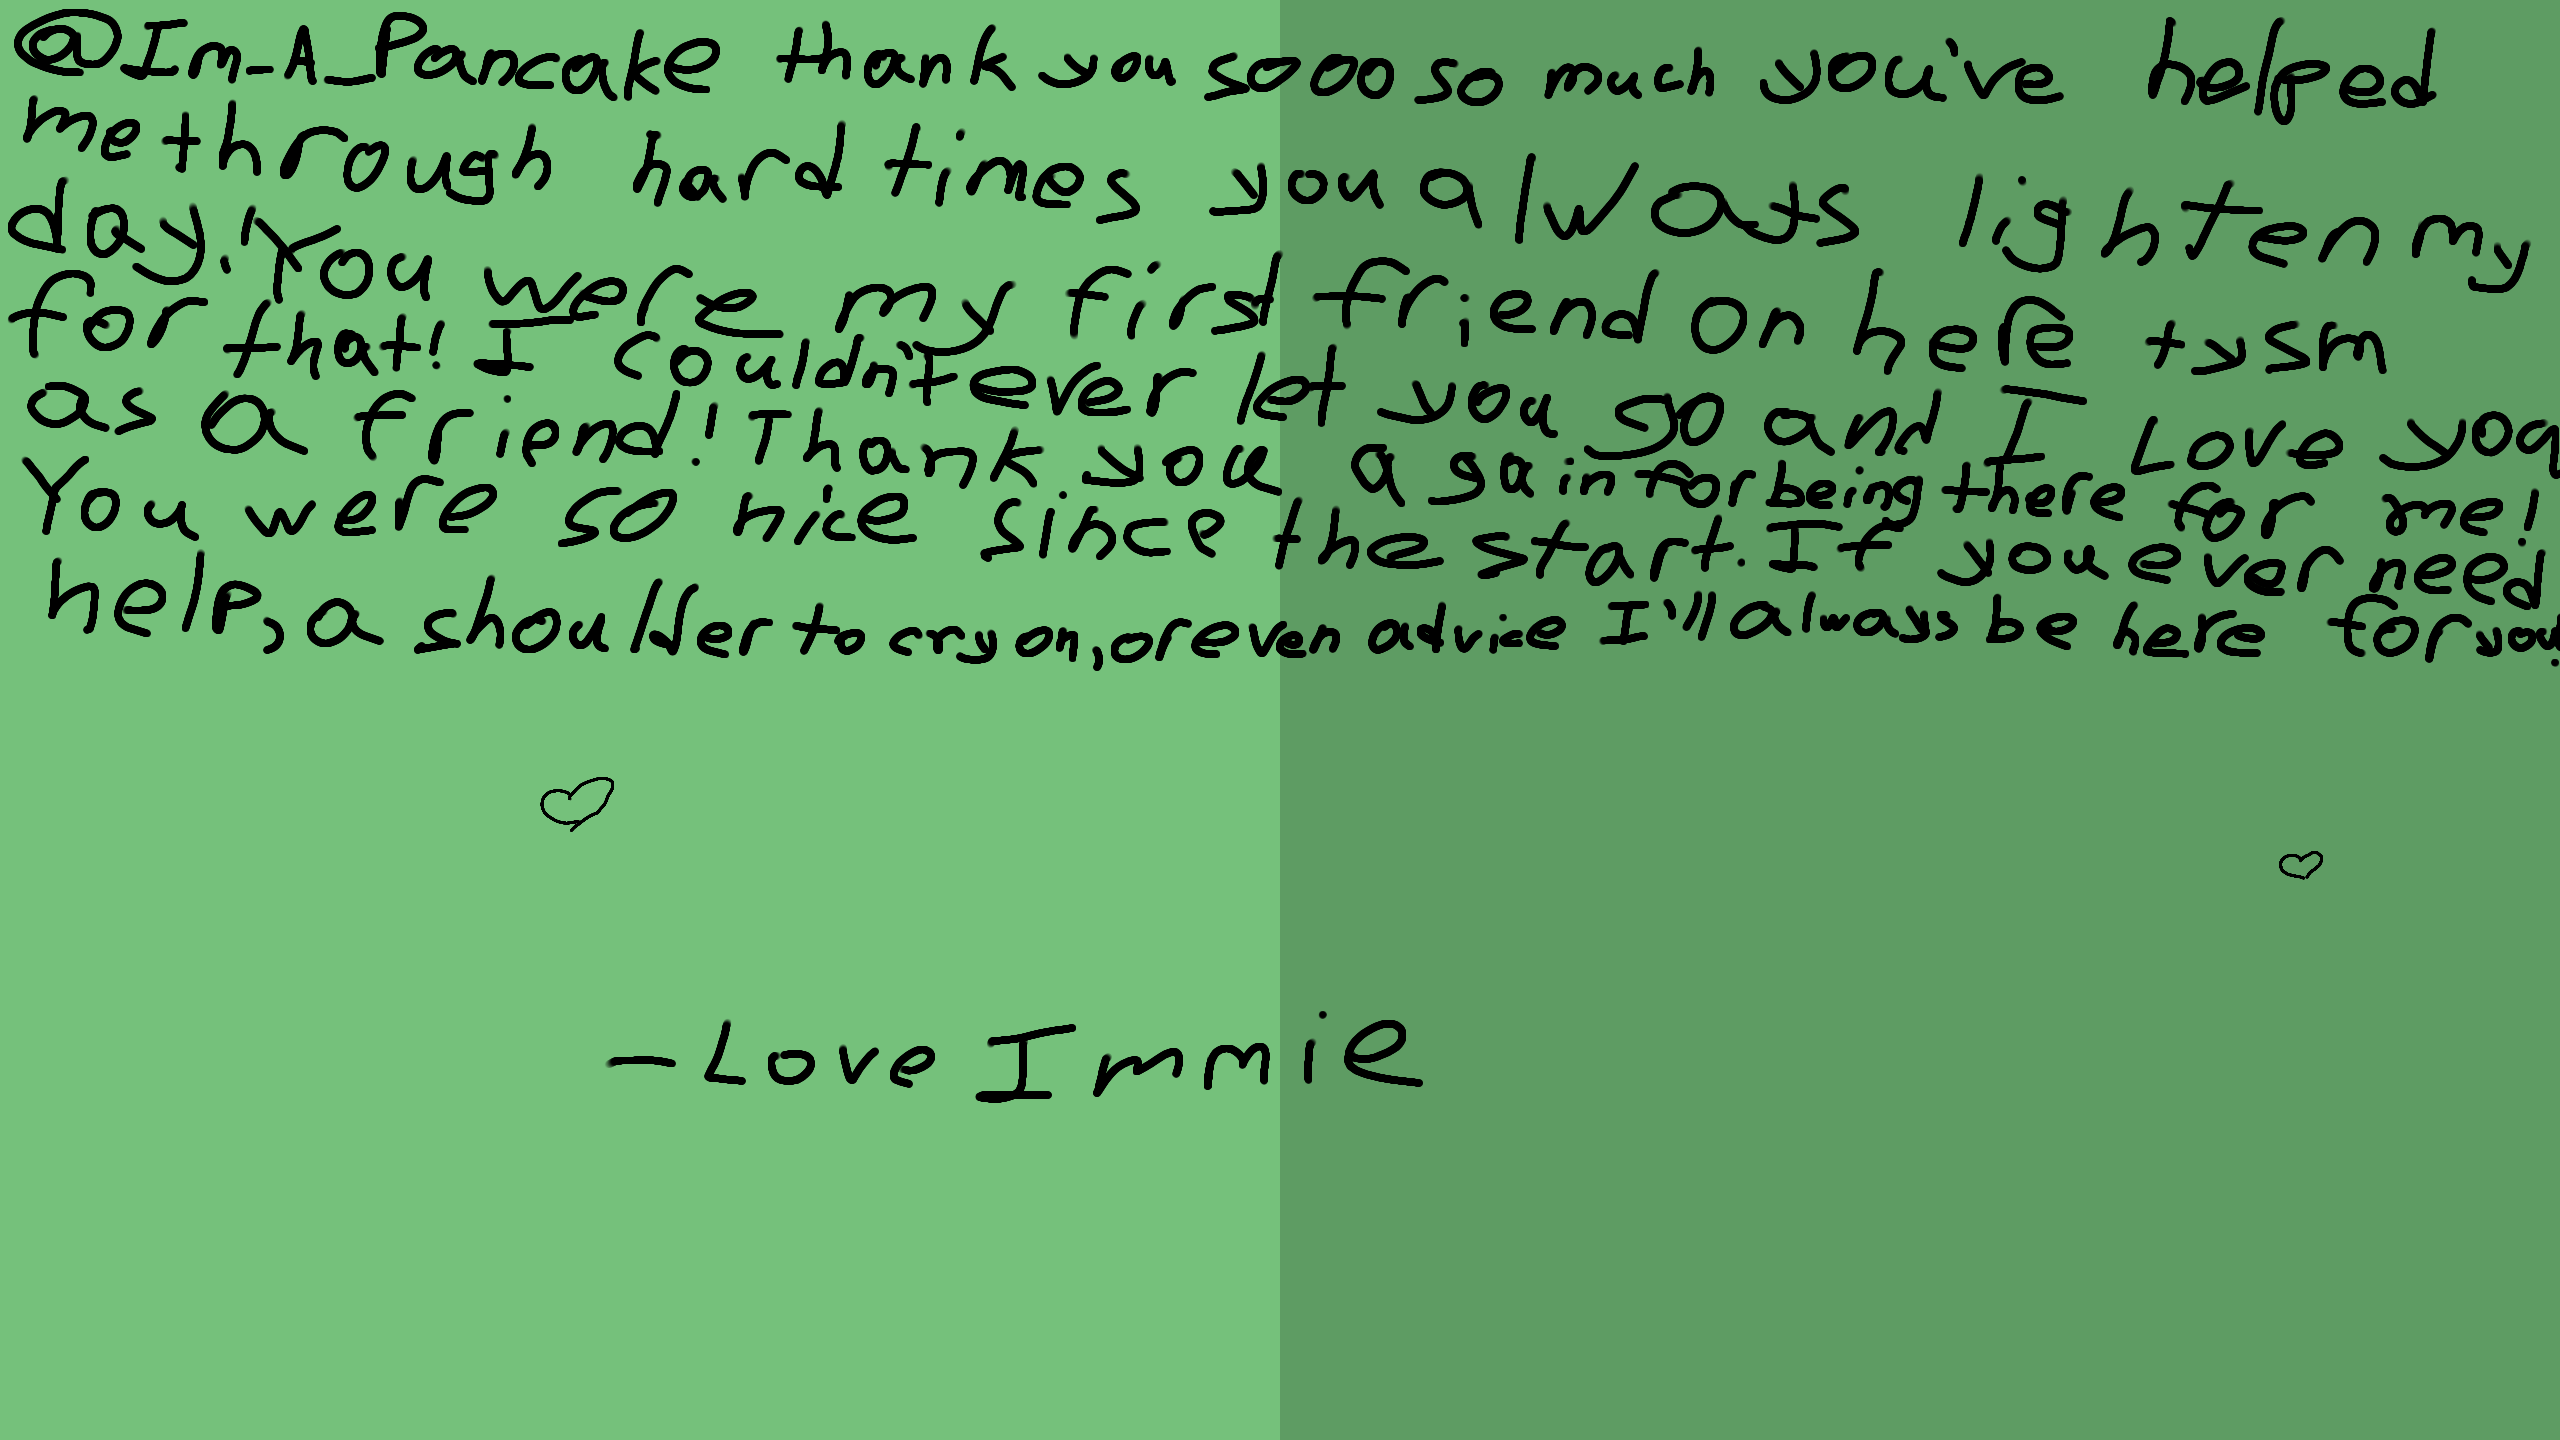 @Im_A_Pancake thank you sooo so much you've helped
me through hard times you always lighten my
day! You were my first friend on here tysm
for that! I couldn't ever let you go and I Love you
as a friend! Thank you again for being there for me!
You were so nice since the start. If you ever need
help, a shoulder to cry on, or even advice I'll always be here for you!
-Love Immie